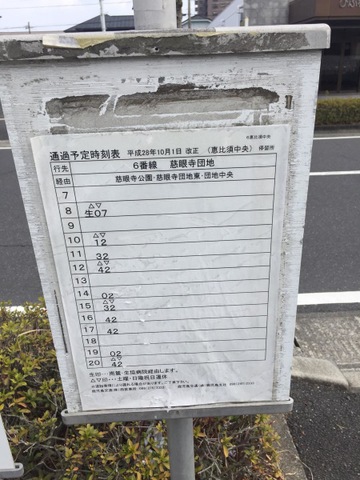 恵比須中央
通過予定時刻表 平成28年10月1日 改正 (恵比須中央) 停留所
行先 6番線 慈眼寺団地
経由 慈眼寺公園・慈眼寺団地東・団地中央
7
△▽
8 生07
9
△▽
10 12
11 32
△▽
12 42
13
14 02
△▽
15 32
16 42
17 42
18
19 02
△▽
20 42
△▽印・・・土曜・日曜祝日運休